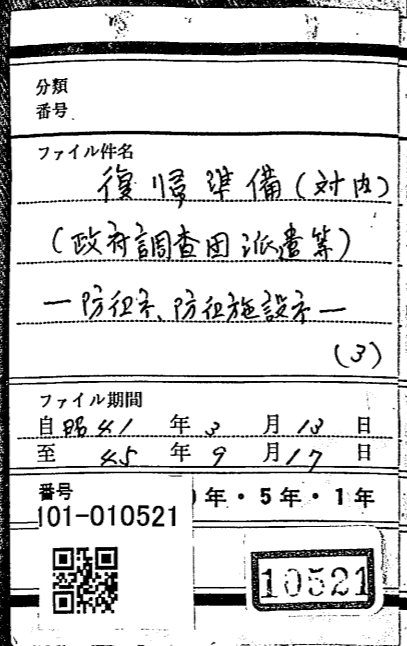 分類
番号
ファイル件名
復帰準備(対内)
(政府調査団派遣等)
―防衛庁、防衛施設庁―
(3)
ファイル期間
自 昭41年3月13日
至 45年9月17日
番号
101-010521
年・5年・1年
10521